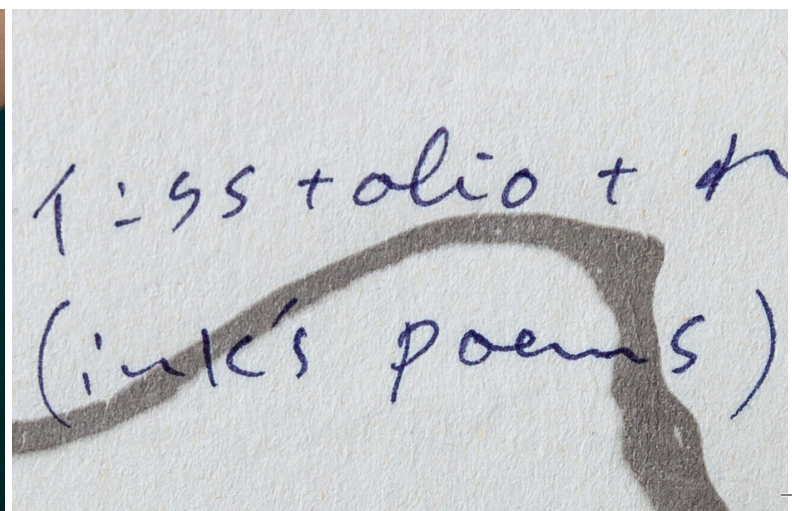 1:55 + olio +
(ink's poems)